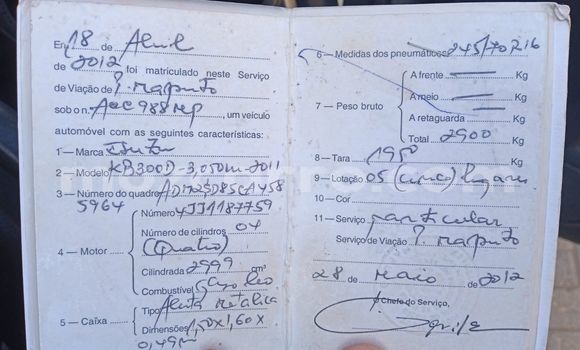 Em 18 de Abril
de 2012 foi matriculado neste Serviço
de Viação de P. Maputo
sob o n. AAC 988 MP, um veículo
automóvel com as seguintes características:
1 — Marca Isuzu
2 — Modelo KB300D-3,0
3 — Número do quadro
5964
4 — Motor
Número 4JJ1187759
Número de cilindros 04
(Quatro)
Cilindrada 2999 cm³
Combustível Gasóleo
5 — Caixa
Tipo Aberta Metálica
Dimensões 1,50x1,60x
0,49m
6 — Medidas dos pneumáticos 245/70R16
7 — Peso bruto
A frente Kg
A meio Kg
A retaguarda Kg
Total 2900 Kg
8 — Tara 1950 Kg
9 — Lotação 05 (cinco) lugares
10 — Cor
11 — Serviço particular
Serviço de Viação P. Maputo
28 de Maio de 2012
O Chefe do Serviço,